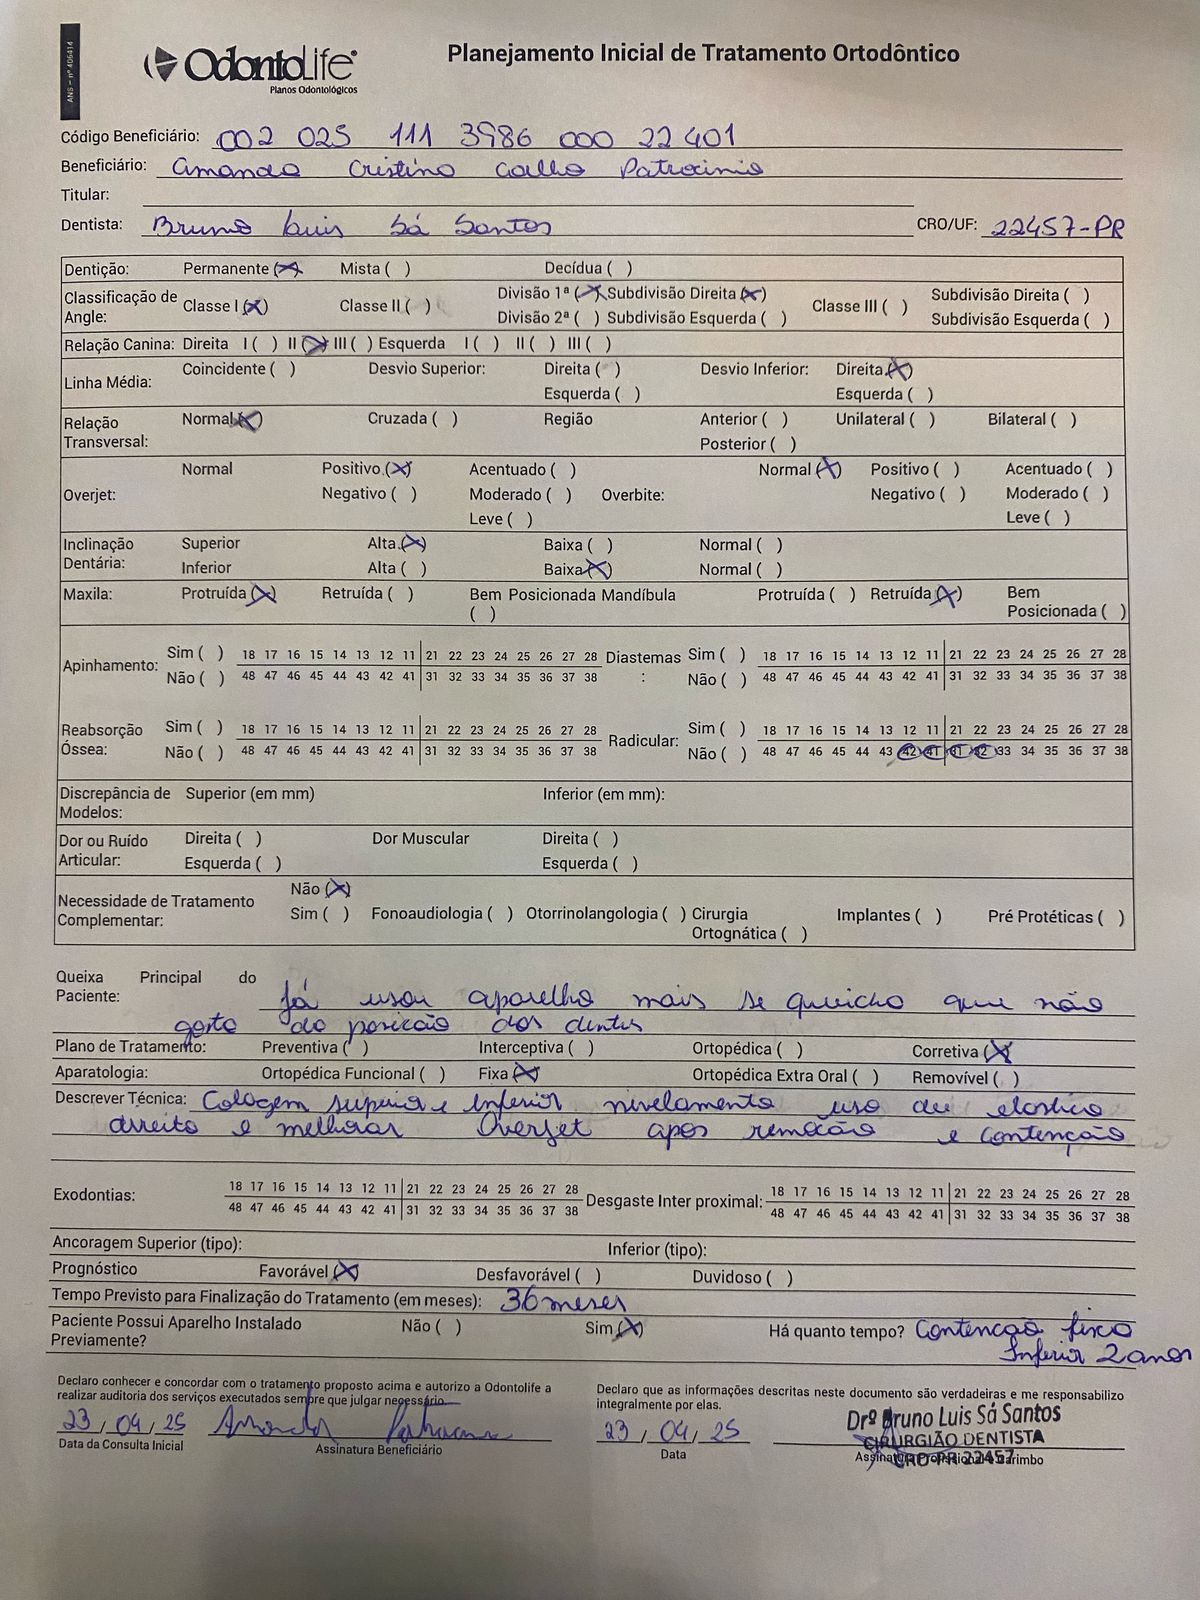 ANS - nº 406414
OdontoLife®
Planos Odontológicos
Planejamento Inicial de Tratamento Ortodôntico
Código Beneficiário: 002 025 111 3986 000 22 401
Beneficiário: Amanda Cristina Coelho Patrocinio
Titular:
Dentista: Bruno Luis Sá Santos CRO/UF: 22457-PR
Dentição: Permanente (X) Mista ( ) Decídua ( )
Classificação de Angle: Classe I (X) Classe II ( ) Divisão 1ª (X) Subdivisão Direita (X) Classe III ( ) Subdivisão Direita ( )
Divisão 2ª ( ) Subdivisão Esquerda ( ) Subdivisão Esquerda ( )
Relação Canina: Direita I ( ) II (X) III ( ) Esquerda I ( ) II ( ) III ( )
Linha Média: Coincidente ( ) Desvio Superior: Direita ( ) Desvio Inferior: Direita (X)
Esquerda ( ) Esquerda ( )
Relação Transversal: Normal (X) Cruzada ( ) Região Anterior ( ) Unilateral ( ) Bilateral ( )
Posterior ( )
Overjet: Normal Positivo (X) Acentuado ( ) Overbite: Normal (X) Positivo ( ) Acentuado ( )
Negativo ( ) Moderado ( ) Negativo ( ) Moderado ( )
Leve ( ) Leve ( )
Inclinação Dentária: Superior Alta (X) Baixa ( ) Normal ( )
Inferior Alta ( ) Baixa (X) Normal ( )
Maxila: Protruída (X) Retruída ( ) Bem Posicionada ( ) Mandíbula Protruída ( ) Retruída (X) Bem Posicionada ( )
Apinhamento: Sim ( ) 18 17 16 15 14 13 12 11 21 22 23 24 25 26 27 28 Diastemas : Sim ( ) 18 17 16 15 14 13 12 11 21 22 23 24 25 26 27 28
Não ( ) 48 47 46 45 44 43 42 41 31 32 33 34 35 36 37 38 Não ( ) 48 47 46 45 44 43 42 41 31 32 33 34 35 36 37 38
Reabsorção Óssea: Sim ( ) 18 17 16 15 14 13 12 11 21 22 23 24 25 26 27 28 Radicular: Sim ( ) 18 17 16 15 14 13 12 11 21 22 23 24 25 26 27 28
Não ( ) 48 47 46 45 44 43 42 41 31 32 33 34 35 36 37 38 Não ( ) 48 47 46 45 44 43 42 41 31 32 33 34 35 36 37 38
Discrepância de Modelos: Superior (em mm) Inferior (em mm):
Dor ou Ruído Articular: Direita ( ) Dor Muscular Direita ( )
Esquerda ( ) Esquerda ( )
Necessidade de Tratamento Complementar: Não (X)
Sim ( ) Fonoaudiologia ( ) Otorrinolangologia ( ) Cirurgia Ortognática ( ) Implantes ( ) Pré Protéticas ( )
Queixa Principal do Paciente: Já usou aparelho mais se queicha que não
gosta da posicão dos dentes
Plano de Tratamento: Preventiva ( ) Interceptiva ( ) Ortopédica ( ) Corretiva (X)
Aparatologia: Ortopédica Funcional ( ) Fixa (X) Ortopédica Extra Oral ( ) Removível ( )
Descrever Técnica: Colagem superior e inferior nivelamento uso de elastico
direito e melhorar Overjet apos remocão e contenção
Exodontias: 18 17 16 15 14 13 12 11 21 22 23 24 25 26 27 28 Desgaste Inter proximal: 18 17 16 15 14 13 12 11 21 22 23 24 25 26 27 28
48 47 46 45 44 43 42 41 31 32 33 34 35 36 37 38 48 47 46 45 44 43 42 41 31 32 33 34 35 36 37 38
Ancoragem Superior (tipo): Inferior (tipo):
Prognóstico Favorável (X) Desfavorável ( ) Duvidoso ( )
Tempo Previsto para Finalização do Tratamento (em meses): 36 meses
Paciente Possui Aparelho Instalado Previamente? Não ( ) Sim (X) Há quanto tempo? Contencão fixa
Inferior 2 anos
Declaro conhecer e concordar com o tratamento proposto acima e autorizo a Odontolife a
realizar auditoria dos serviços executados sempre que julgar necessário.
23 / 04 / 25 Amanda Patrocinio
Data da Consulta Inicial Assinatura Beneficiário
Declaro que as informações descritas neste documento são verdadeiras e me responsabilizo
integralmente por elas.
23 / 04 / 25
Data
Drº Bruno Luis Sá Santos
CIRURGIÃO DENTISTA
CRO-PR 22457